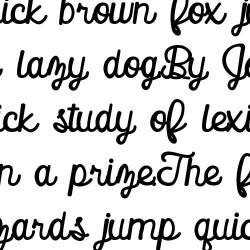 ick brown fox j
lazy dog.By Jo
ick study of lexi
n a prize.The f
zards jump qui